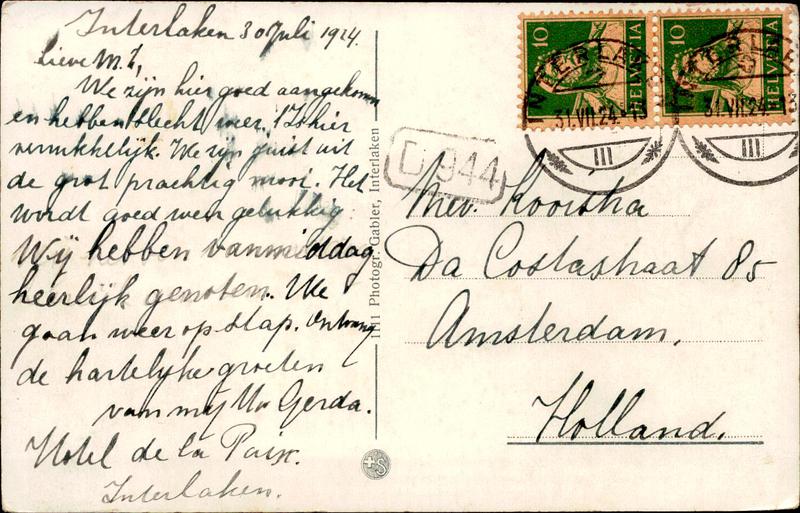 Interlaken 30 Juli 1924.
Lieve M.
We zijn hier goed aangekomen
en hebben slecht weer. 't Is hier
verrukkelijk. We zijn juist uit
de grot prachtig mooi. Het
wordt goed weer gelukkig.
Wij hebben vanmiddag
heerlijk genoten. We
gaan weer op stap. Ontvang
de hartelijke groeten
van mij Uw Gerda.
Hotel de la Paix.
Interlaken.
1111 Photogr. Gabler, Interlaken
10 HELVETIA
10 HELVETIA
INTERLAKEN
31.VII.24.-13
III
31.VII.24.-13
III
D 944
Mev. Kooistra
Da Costastraat 85
Amsterdam.
Holland.